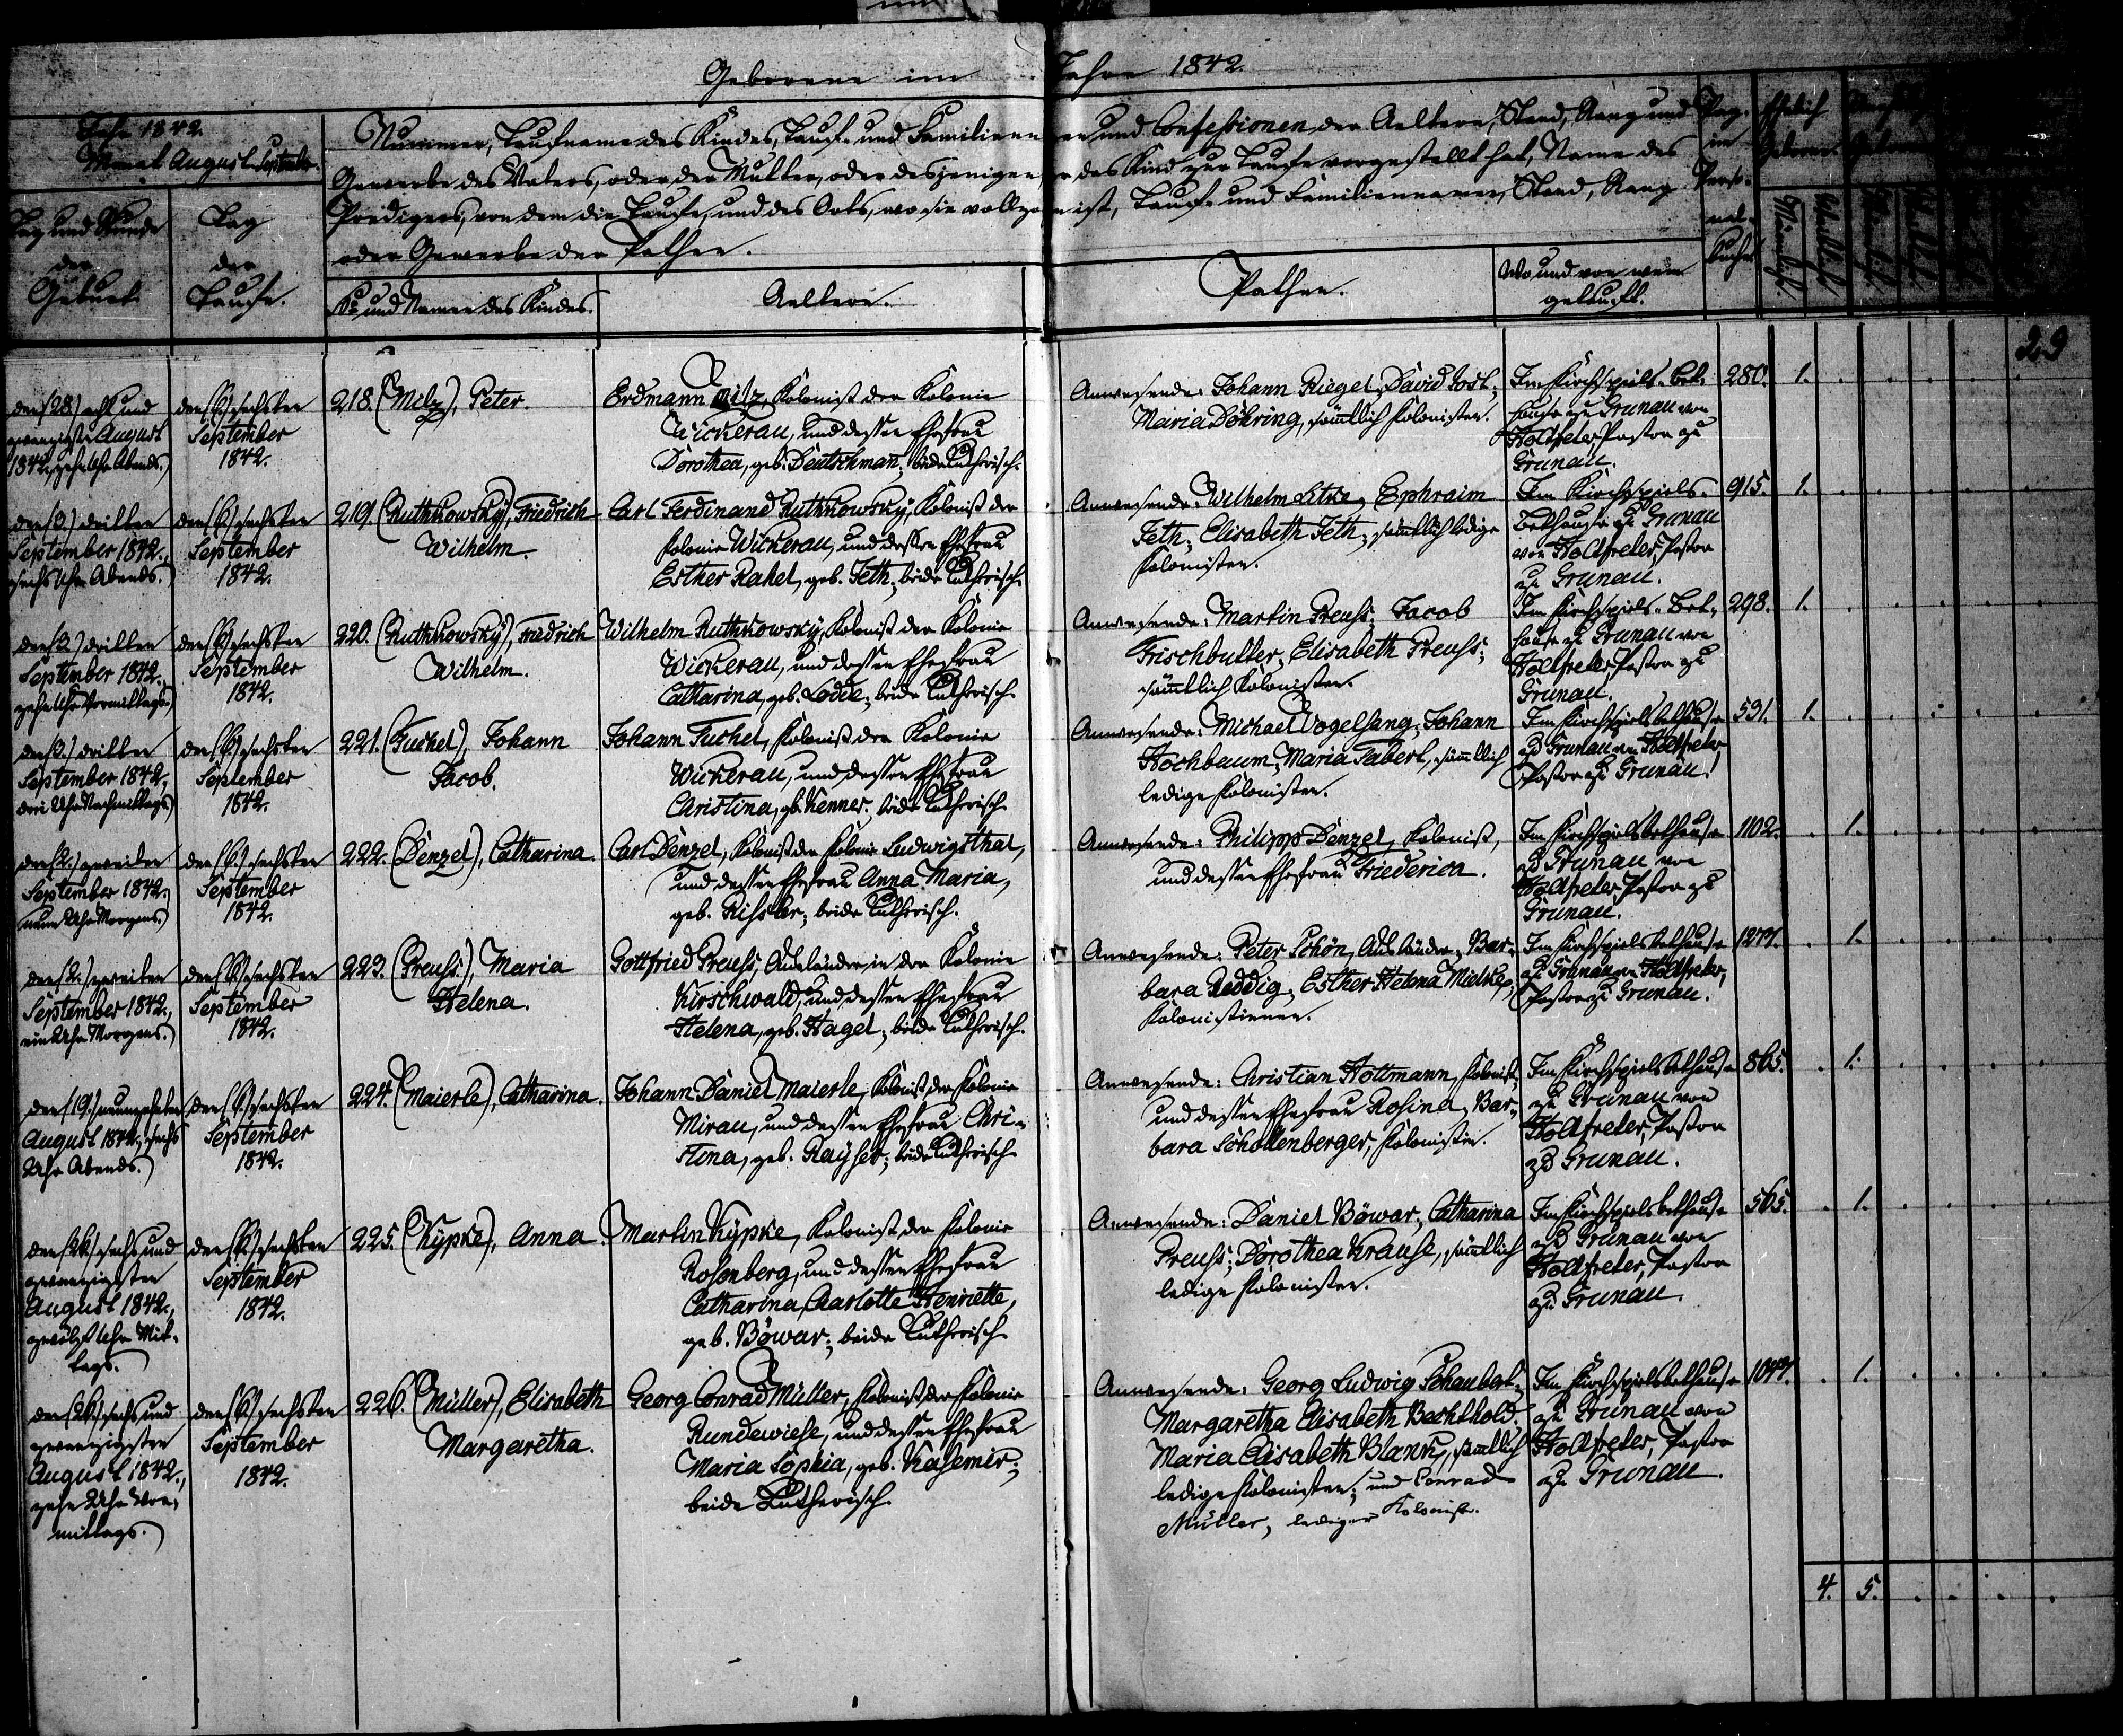 Geborene im Jahre 1842.
Jahr 1842.
Monat August. September.
Tag und Stunde
der
Geburt.
Tag
der
Taufe.
Nummer, Taufname des Kindes, Tauf- und Familiennamen und Confessionen der Aeltern, Stand, Rang und
Gewerbe des Vaters, oder der Mutter, oder desjenigen, der das Kind zur Taufe vorgestellt hat, Name des
Predigers, von dem die Taufe, und des Orts, wo sie vollzogen ist, Tauf- und Familiennamen, Stand, Rang
oder Gewerbe der Pathen.
No und Namen des Kindes.
Aeltern.
Pathen.
Wo und von wem
getauft.
Pag.
im
Perso-
nal-
Buche
Ehelich
Geboren
Männlich.
Weiblich
29
den (28) acht und
zwanzigsten August
1842, zehn Uhr Abends.
den (6.) sechsten
September
1842.
218. (Milz), Peter.
Erdmann Milz, Kolonist der Kolonie
Wickerau, und dessen Ehefrau
Dorothea, geb. Deutschman; beide Lutherisch.
Anwesende: Johann Riegel; David Jost;
Maria Döhring, sämtlich Kolonisten.
Im Kirchspiels-Bet-
hause zu Grunau von
Holtfreter, Pastor zu
Grunau.
280. 1.
den (3.) dritten
September 1842.,
sechs Uhr Abends.
den (6.) sechsten
September
1842.
219. (Ruthkowsky), Friedrich
Wilhelm.
Carl Ferdinand Ruthkowsky, Kolonist der
Kolonie Wickerau, und dessen Ehefrau
Esther Rahel, geb. Feth; beide Lutherisch.
Anwesende: Wilhelm Litke; Ephraim
Feth; Elisabeth Feth; sämtlich ledige
Kolonisten.
Im Kirchspiels-
Bethause zu Grunau
von Holtfreter, Pastor
zu Grunau.
915. 1.
den (3.) dritten
September 1842.,
zehn Uhr Vormittags.
den (6.) sechsten
September
1842.
220. (Ruthkowsky), Friedrich
Wilhelm.
Wilhelm Ruthkowsky, Kolonist der Kolonie
Wickerau, und dessen Ehefrau
Catharina, geb. Lodde; beide Lutherisch.
Anwesende: Martin Preuss; Jacob
Frischbutter; Elisabeth Preuss;
sämtlich Kolonisten.
Im Kirchspiels-Bet-
hause zu Grunau von
Holtfreter, Pastor zu
Grunau.
298. 1.
den (3.) dritten
September 1842.,
drei Uhr Nachmittags.
den (6.) sechsten
September
1842.
221. (Tuchel), Johann
Jacob.
Johann Tuchel, Kolonist der Kolonie
Wickerau, und dessen Ehefrau
Christina, geb. Kenner; beide Lutherisch.
Anwesende: Michael Vogelsang; Johann
Hochbaum; Maria Tabert, sämtlich
ledige Kolonisten.
Im Kirchspielsbethause
zu Grunau von Holtfreter,
Pastor zu Grunau.
531. 1.
den (2.) zweiten
September 1842.,
neun Uhr Morgens.
den (6.) sechsten
September
1842.
222. (Denzel), Catharina.
Carl Denzel, Kolonist der Kolonie Ludwigsthal,
und dessen Ehefrau Anna Maria,
geb. Rissler; beide Lutherisch.
Anwesende: Philipp Denzel, Kolonist,
und dessen Ehefrau Friederica.
Im Kirchspielsbethause
zu Grunau von
Holtfreter, Pastor zu
Grunau.
1102. 1.
den (2.) zweiten
September 1842.,
ein Uhr Morgens.
den (6.) sechsten
September
1842.
223. (Preuss), Maria
Helena.
Gottfried Preuss, Ausländer, in der Kolonie
Kirschwald, und dessen Ehefrau
Helena, geb. Hagel; beide Lutherisch.
Anwesende: Peter Schön, Ausländer; Bar-
bara Reddig; Esther Helena Mielke,
Kolonistinnen.
Im Kirchspielsbethause
zu Grunau von Holtfreter,
Pastor zu Grunau.
1277. 1.
den (19.) neunzehnten
August 1842., sechs
Uhr Abends.
den (6.) sechsten
September
1842.
224. (Maierle), Catharina.
Johann Daniel Maierle, Kolonist der Kolonie
Mirau, und dessen Ehefrau Chri-
stina, geb. Kayser; beide Lutherisch.
Anwesende: Christian Hottmann, Kolonist,
und dessen Ehefrau Rosina; Bar-
bara Schollenberger, Kolonistin.
Im Kirchspielsbethause
zu Grunau von
Holtfreter, Pastor
zu Grunau.
865. 1.
den (26.) sechs und
zwanzigsten
August 1842.,
zwölf Uhr Mit-
tags.
den (6.) sechsten
September
1842.
225. (Kypke), Anna.
Martin Kypke, Kolonist der Kolonie
Rosenberg, und dessen Ehefrau
Catharina Charlotte Henriette,
geb. Böwar; beide Lutherisch.
Anwesende: Daniel Böwar; Catharina
Preuss; Dorothea Krause, sämtlich
ledige Kolonisten.
Im Kirchspielsbethause
zu Grunau von
Holtfreter, Pastor
zu Grunau.
565. 1.
den (26.) sechs und
zwanzigsten
August 1842.,
zehn Uhr Vor-
mittags.
den (6.) sechsten
September
1842.
226. (Müller), Elisabeth
Margaretha.
Georg Conrad Müller, Kolonist der Kolonie
Rundewiese, und dessen Ehefrau
Maria Sophia, geb. Kasemir;
beide Lutherisch.
Anwesende: Georg Ludwig Schaubert;
Margaretha Elisabeth Bechthold;
Maria Elisabeth Blank, sämtlich
ledige Kolonisten; und Conrad
Müller, lediger Kolonist.
Im Kirchspielsbethause
zu Grunau von
Holtfreter, Pastor
zu Grunau.
1047. 1.
4. 5.